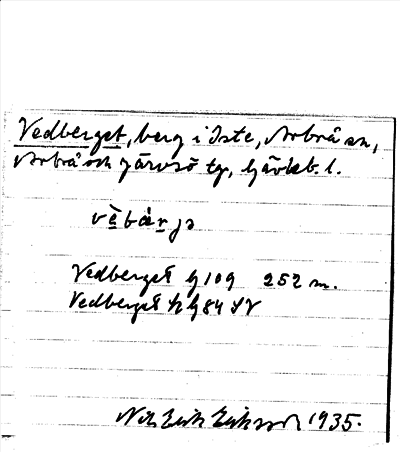 Vedberget, berg i Iste, Arbrå sn,
Arbrå och Järvsö tg, Gävleb. l.
vèbárjə
Vedberget G 109 252 m.
Vedberget ½ G 84 SV
Nils Erik Eriksson 1935.